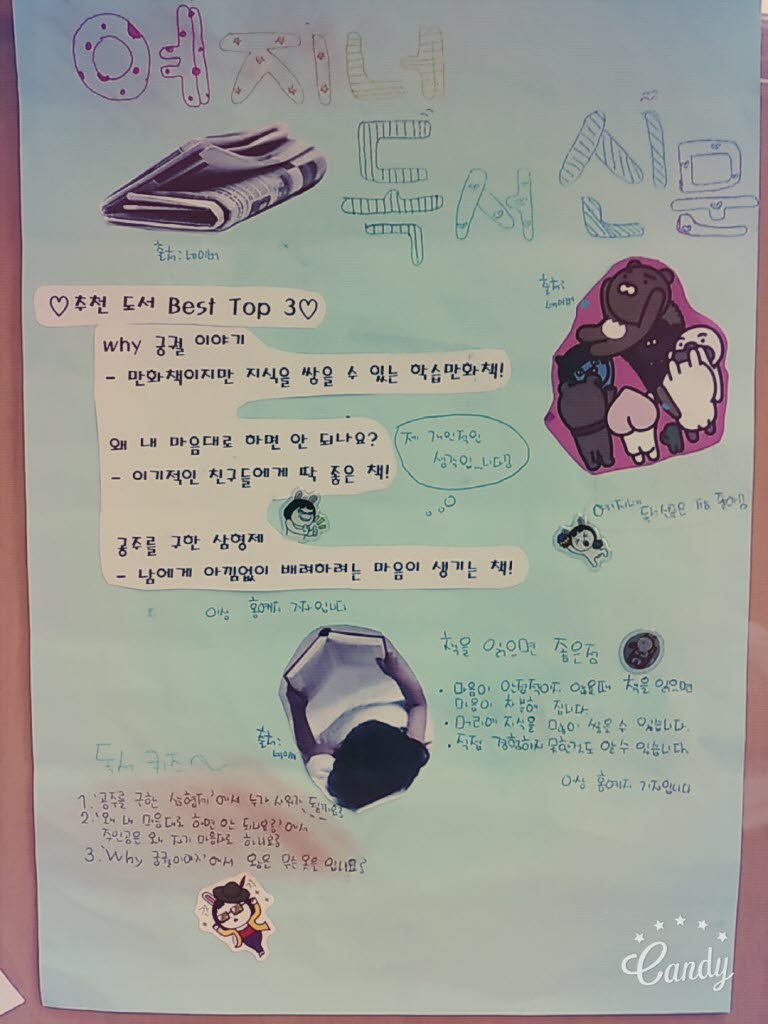 여지너
독서 신문
출처: 네이버
출처:
네이버
♡추천 도서 Best Top 3♡
why 궁궐 이야기
- 만화책이지만 지식을 쌓을 수 있는 학습만화책!
왜 내 마음대로 하면 안 되나요?
- 이기적인 친구들에게 딱 좋은 책!
제 개인적인
생각입...니다
공주를 구한 삼형제
- 남에게 아낌없이 배려하려는 마음이 생기는 책!
이상 홍예지 기자입니다
책을 읽으면 좋은점
• 마음이 안정적이지 않을때 책을 읽으면
마음이 차분해 집니다.
• 머리에 지식을 많이 쌓을 수 있습니다.
• 직접 경험하지 못한것도 알 수 있습니다.
이상 홍예지 기자입니다
출처:
네이버
독서 퀴즈~
1. '공주를 구한 삼형제'에서 누가 사위가 될까요?
2. '왜 내 마음대로 하면 안 되나요?'에서
주인공은 왜 자기 마음대로 하나요?
3. 'Why 궁궐이야기'에서 왕은 무슨 옷을 입나요?
Candy